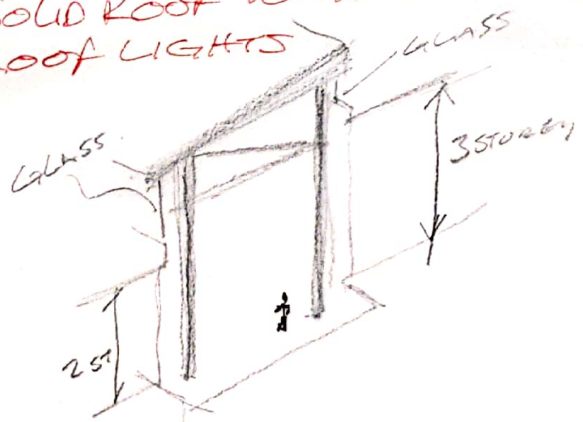 SOLID ROOF
ROOF LIGHTS
GLASS
GLASS
3 STOREY
2 ST